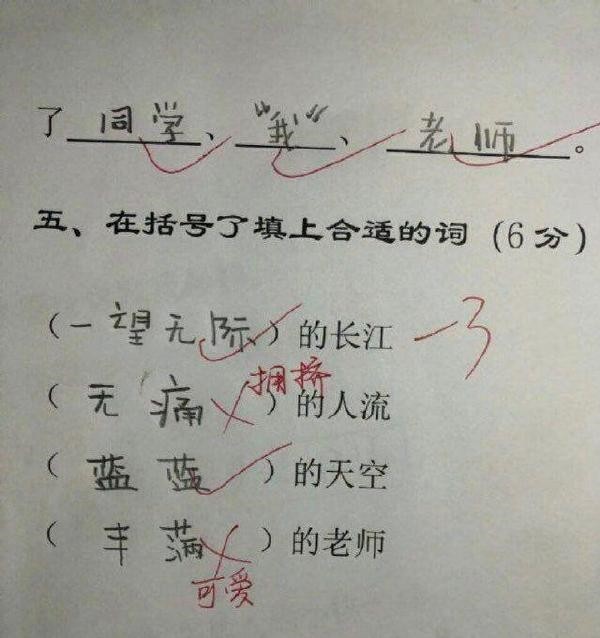 了 同学、"我"、老师。
五、在括号了填上合适的词（6分）
（一望无际）的长江 -3
拥挤
（无痛）的人流
（蓝蓝）的天空
（丰满）的老师
可爱